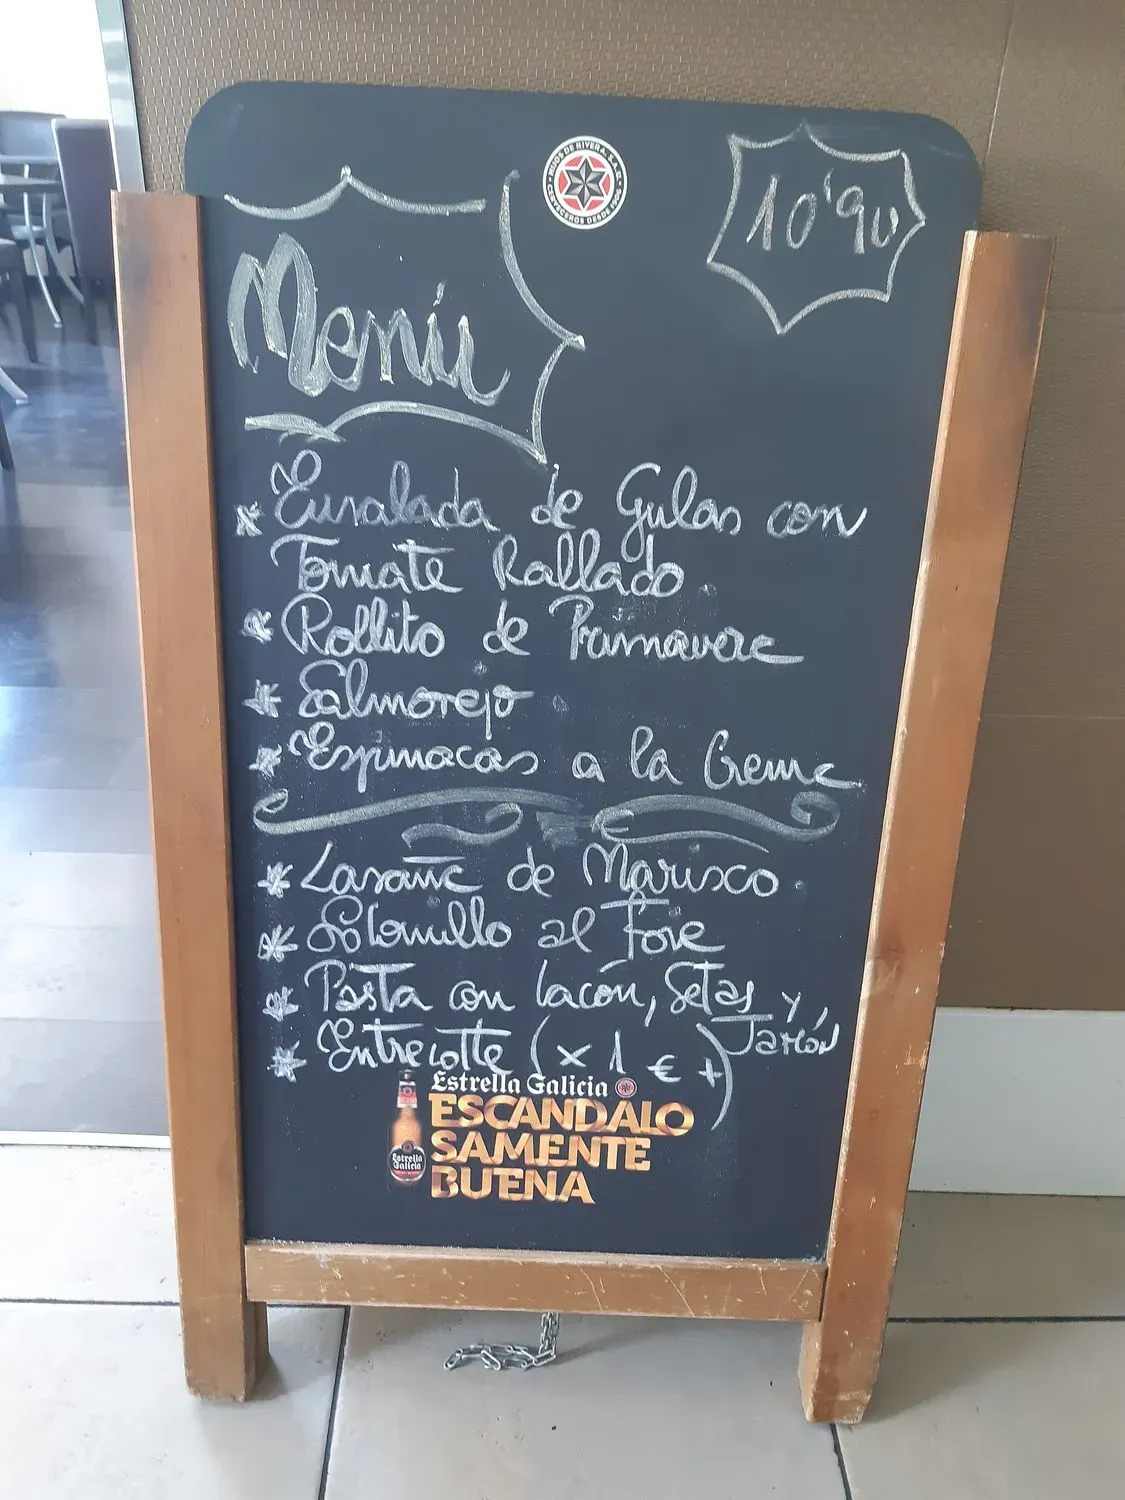 HIJOS DE RIVERA, S.A.U.
CERVECEROS DESDE 1906
10'90
Menú
* Ensalada de Gulas con
Tomate Rallado
* Rollito de Primavera
* Salmorejo
* Espinacas a la Crema
* Lasaña de Marisco
* Solomillo al Foie
* Pasta con lacón, Setas y
Jamón
* Entrecotte (x 1 € +)
Estrella Galicia
ESCANDALO
SAMENTE
BUENA
Estrella
Galicia